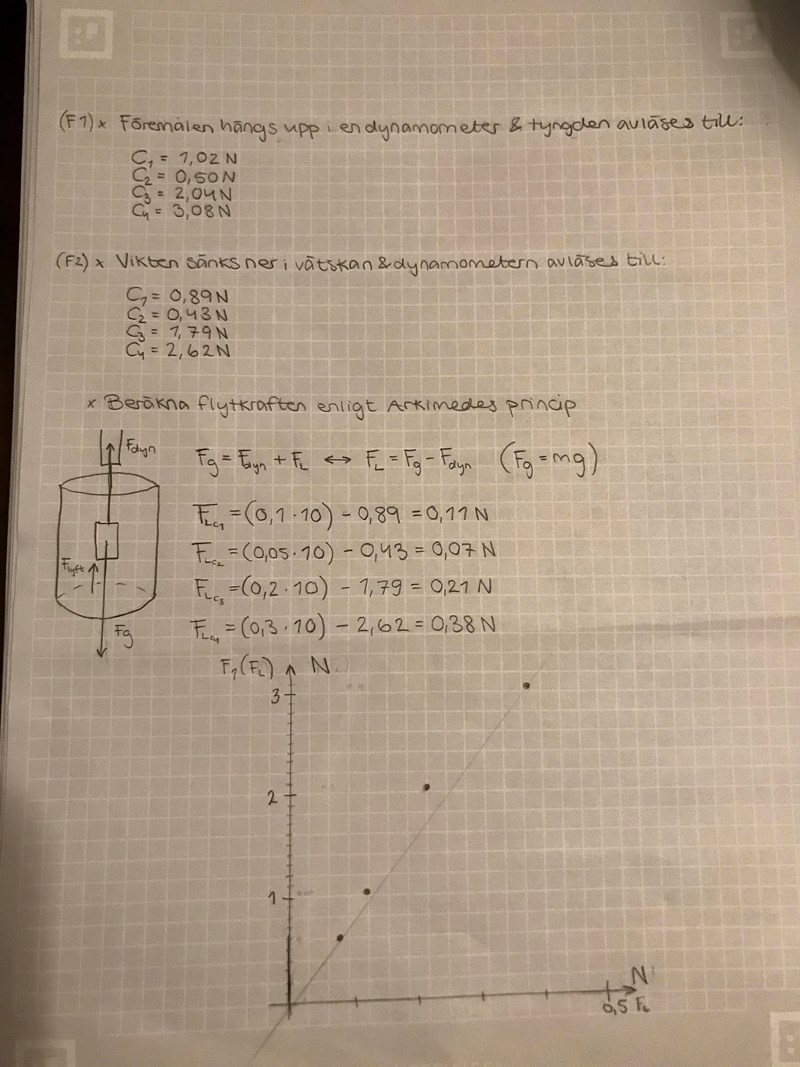 (F1) x Föremålen hängs upp i en dynamometer & tyngden avläses till:
C₁ = 1,02 N
C₂ = 0,50 N
C₃ = 2,04 N
C₄ = 3,08 N
(F2) x Vikten sänks ner i vätskan & dynamometern avläses till:
C₁ = 0,89 N
C₂ = 0,43 N
C₃ = 1,79 N
C₄ = 2,62 N
x Beräkna flytkraften enligt Arkimedes princip
Fdyn
Fg = Fdyn + FL ↔ FL = Fg - Fdyn (Fg = mg)
FLC₁ = (0,1 · 10) - 0,89 = 0,11 N
FLC₂ = (0,05 · 10) - 0,43 = 0,07 N
Flyft
FLC₃ = (0,2 · 10) - 1,79 = 0,21 N
FLC₄ = (0,3 · 10) - 2,62 = 0,38 N
Fg
F₁(FL) N
3
2
1
N
0,5 FL